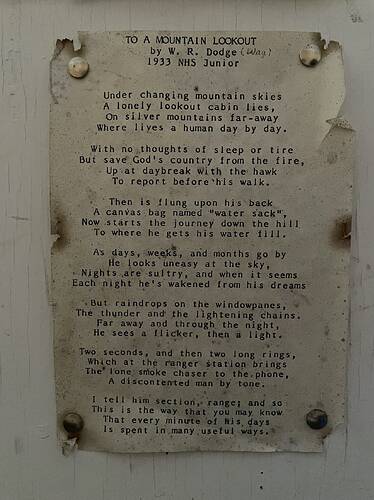 TO A MOUNTAIN LOOKOUT
by W. R. Dodge (Way)
1933 NHS Junior
Under changing mountain skies
A lonely lookout cabin lies,
On silver mountains far-away
Where lives a human day by day.
With no thoughts of sleep or tire
But save God's country from the fire,
Up at daybreak with the hawk
To report before his walk.
Then is flung upon his back
A canvas bag named "water sack",
Now starts the journey down the hill
To where he gets his water fill.
As days, weeks, and months go by
He looks uneasy at the sky,
Nights are sultry, and when it seems
Each night he's wakened from his dreams
But raindrops on the windowpanes,
The thunder and the lightening chains.
Far away and through the night,
He sees a flicker, then a light.
Two seconds, and then two long rings,
Which at the ranger station brings
The lone smoke chaser to the phone,
A discontented man by tone.
I tell him section, range; and so
This is the way that you may know
That every minute of his days
Is spent in many useful ways.